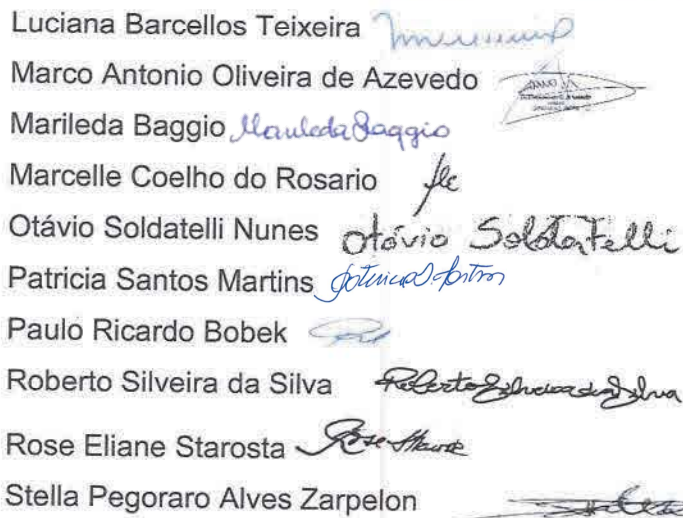 Luciana Barcellos Teixeira
Marco Antonio Oliveira de Azevedo
Marileda Baggio Marileda Baggio
Marcelle Coelho do Rosario
Otávio Soldatelli Nunes Otávio Soldatelli
Patricia Santos Martins
Paulo Ricardo Bobek
Roberto Silveira da Silva Roberto Silveira da Silva
Rose Eliane Starosta Rose
Stella Pegoraro Alves Zarpelon